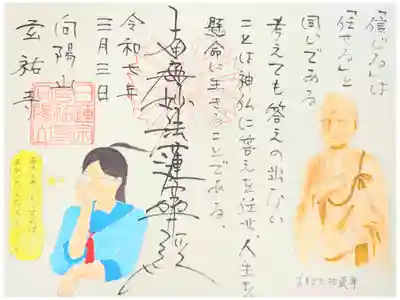 「信じる」は
「任せる」と
同じである
考えても答えの出ない
ことは神仏に答えを任せ、人生を
懸命に生きることである。
南無妙法蓮華経
令和七年
三月三日
向陽山
玄祐寺